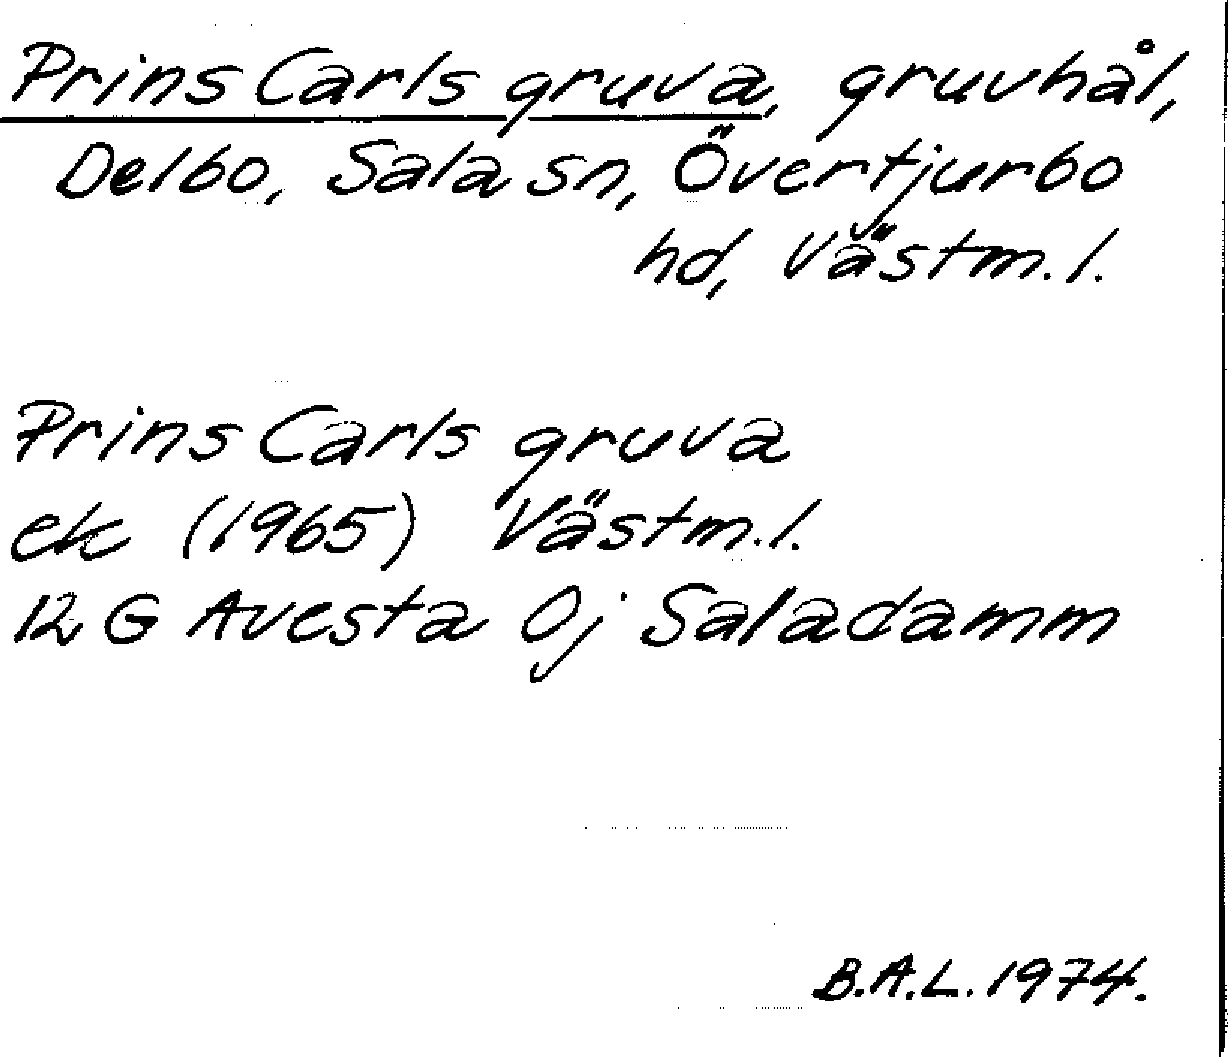 Prins Carls gruva, gruvhål,
Delbo, Sala sn, Övertjurbo
hd, Västm. l.
Prins Carls gruva
ek (1965) Västm. l.
12 G Avesta 0j Saladamm
B.A.L. 1974.